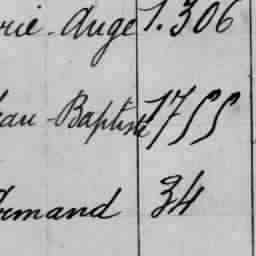 rie-Ange 1.306
ean-Baptiste 1755
rmand 34